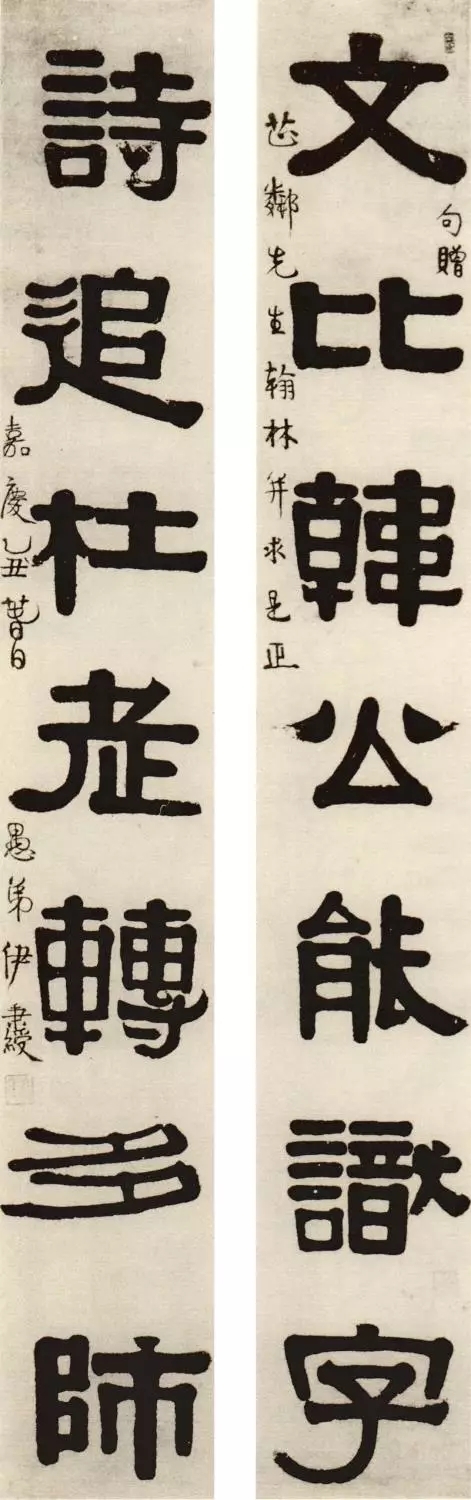 文比韓公能識字
句贈
芷鄰先生翰林并求是正
詩追杜老轉多師
嘉慶乙丑萅日
愚弟伊秉綬